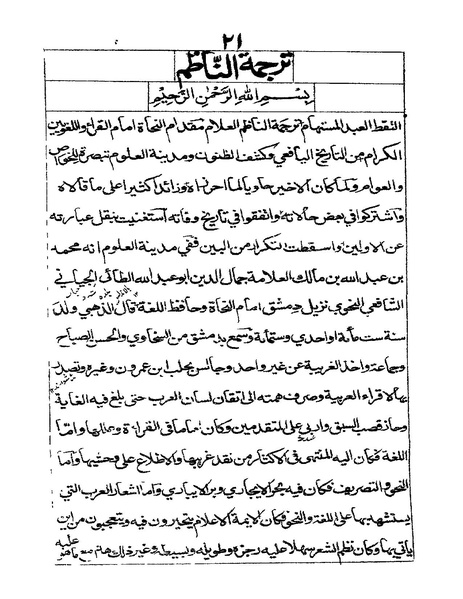 ٢١
ترجمة الناظم
بسم الله الرحمن الرحيم
التقط العبد المستهام ترجمة الناظم العلام مقدام النحاة امام القراء واللغويين
الكرام من التاريخ اليافعي وكشف الظنون ومدينة العلوم تبصرة للخواص
والعوام ولما كان الاخير حاويا لما احرزاه وزائدا كثيرا على ما قالاه
واشتركوا في بعض حالاته واتفقوا في تاريخ وفاته استغنيت بنقل عبارته
عن الاولين واسقطت التكرار من البين ففي مدينة العلوم انه محمد
بن عبد الله بن مالك العلامة جمال الدين ابو عبد الله الطائي الجياني
الشافعي النحوي نزيل دمشق امام النحاة وحافظ اللغة قال الذهبي ولد
سنة ستمائة او احدي وستمائة وسمع بدمشق من السخاوي والحسن الصباح
وجماعة واخذ العربية عن غير واحد وجالس بحلب ابن عمرون وغيره وتصدر
بها لاقراء العربية وصرف همته الى اتقان لسان العرب حتى بلغ فيه الغاية
وحاز قصب السبق واربى على المتقدمين وكان اماما في القراءة وعللها واما
اللغة فكان اليه المنتهى في الاكثار من نقد غريبها والاطلاع على وحشيها واما
النحو والتصريف فكان فيه بحرا لا يجارى وبرا لا يبارى واما اشعار العرب التي
يستشهد بها على اللغة والنحو فكان الايمة الاعلام يتحيرون فيه ويتعجبون من اين
ياتي بها وكان نظم الشعر سهلا عليه رجزه وطويله وبسيطه وغير ذلك هذا مع ما هو عليه